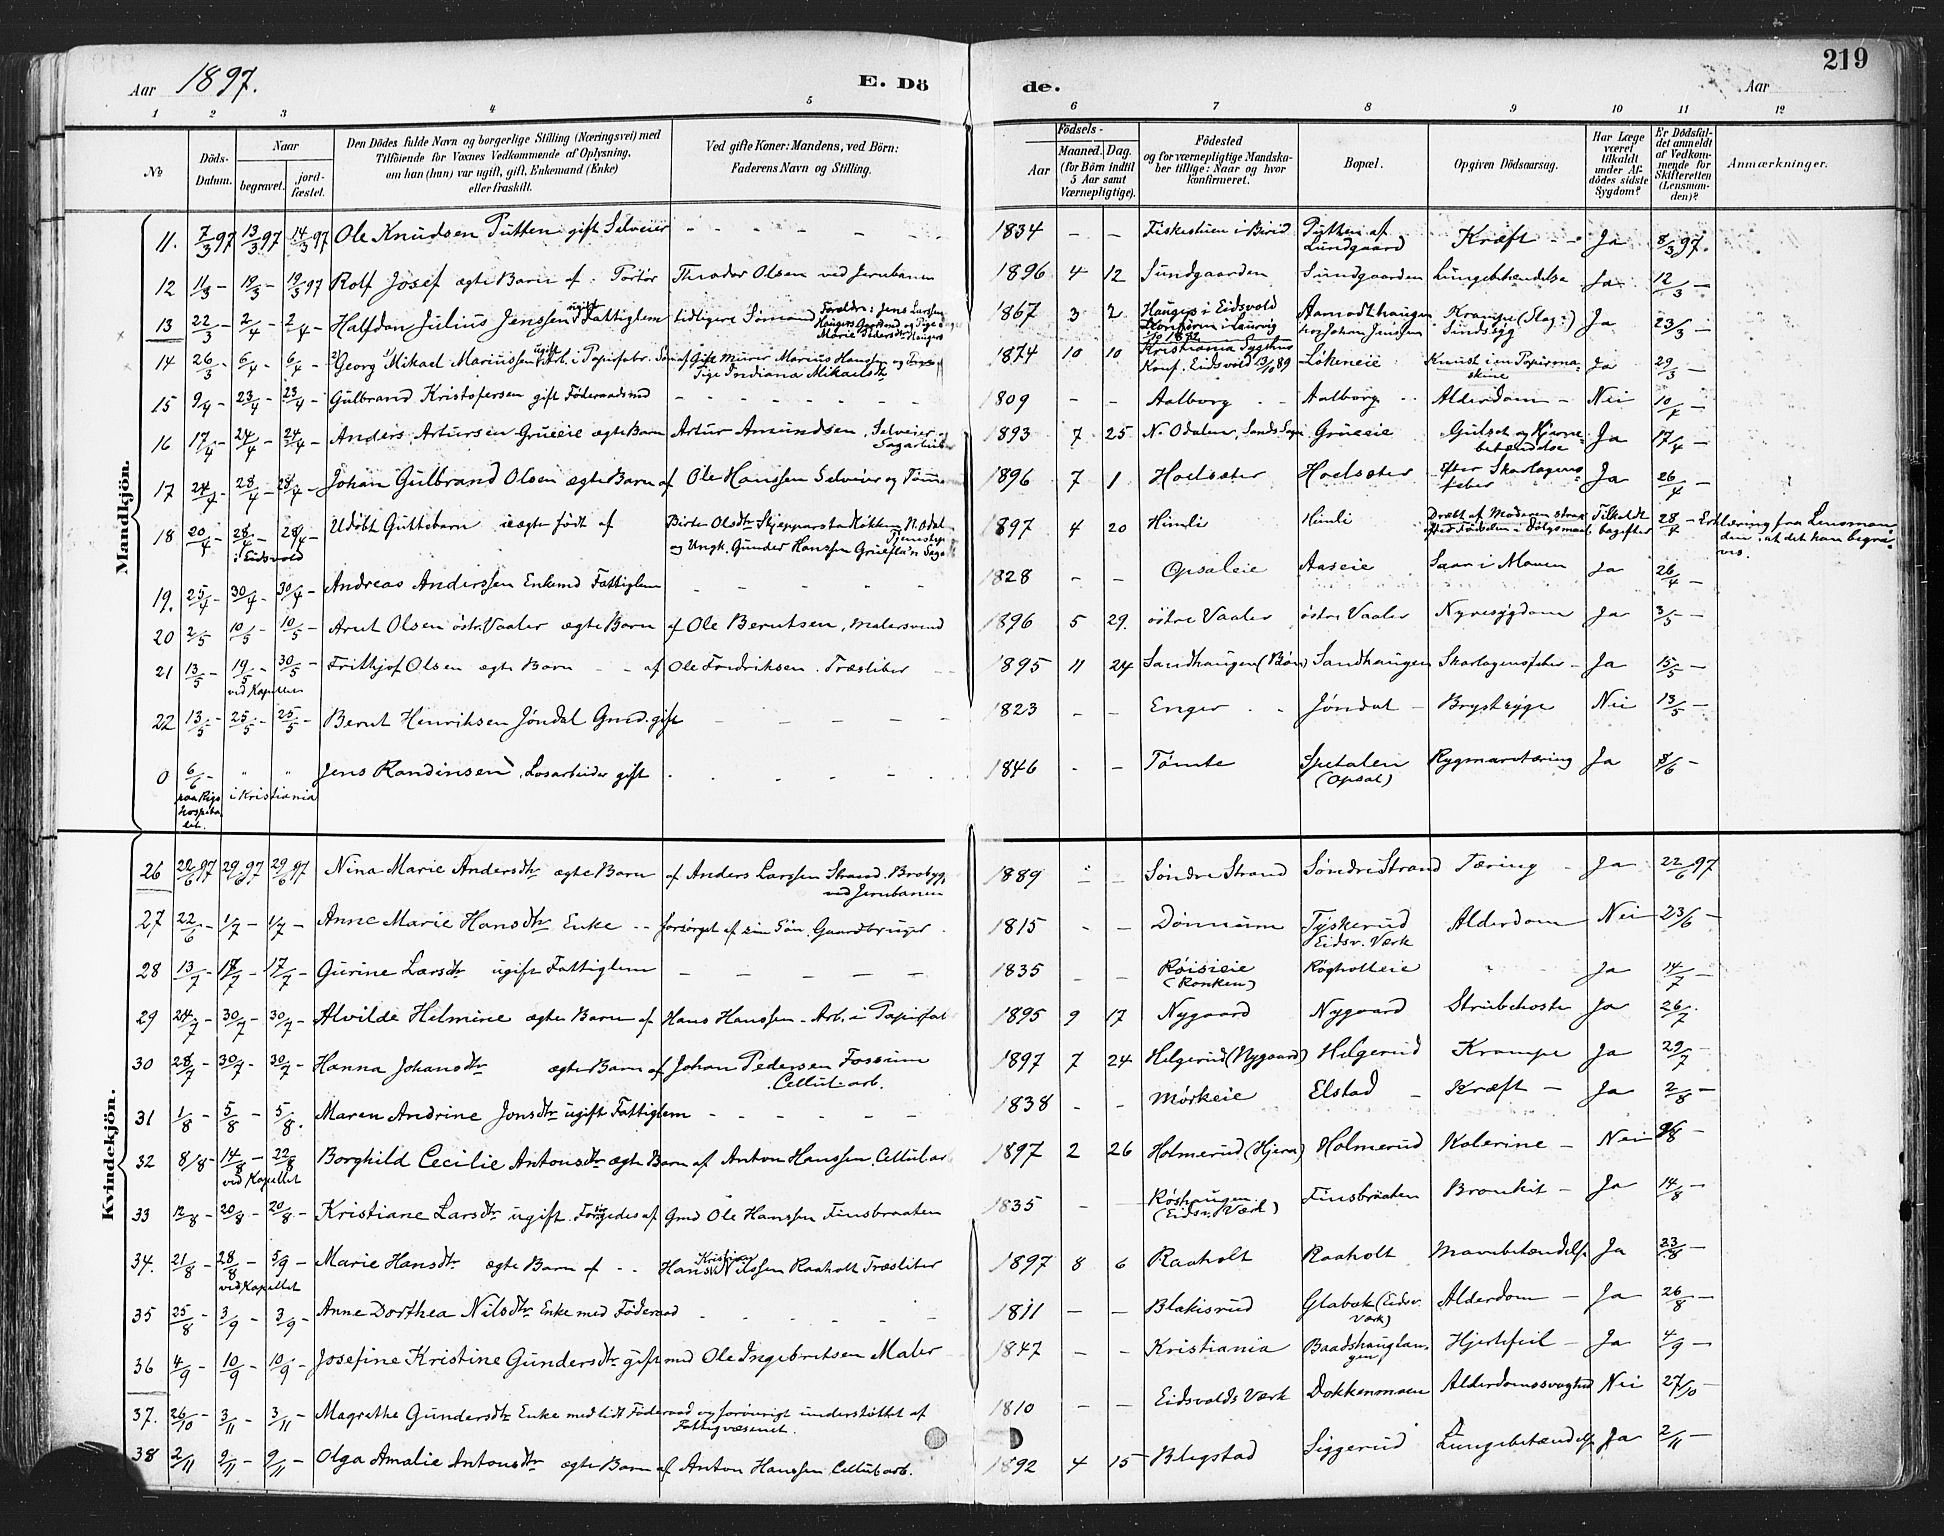 Aar 1897.
E. Dö
de.
Aar
219
1 2 3 4 5 6 7 8 9 10 11 12
No
Döds-Datum.
Naar
begravet.
jord-fæstet.
Den Dödes fulde Navn og borgerlige Stilling (Næringsvei) med
Tilföiende for Voxnes Vedkommende af Oplysning,
om han (hun) var ugift, gift, Enkemand (Enke)
eller fraskilt.
Ved gifte Koner: Mandens, ved Börn:
Faderens Navn og Stilling.
Födsels-
Aar
Maaned. Dag.
(for Börn indtil 5 Aar samt Værnepligtige).
Födested
og for værnepligtige Mandska-
ber tillige: Naar og hvor
konfirmeret.
Bopæl.
Opgiven Dödsaarsag.
Har Læge været tilkaldt under Af-dödes sidste Sygdom?
Er Dödsfal-det anmeldt af Vedkom-mende for Skifteretten (Lensman-den)?
Anmærkninger.
Mandkjön.
11. 7/3 97 13/3 97 14/3 97 Ole Knudsen Putten gift Selveier - - 1834 - - Fiskestuen i Birid Putten af Lundgaard Kræft - Ja 8/3 97.
12 11/3 - 19/3 - 19/3 97 Rolf Josef ægte Barn af Portør Theodor Olsen ved Jernbanen 1896 4 12 Sundgaarden Sundgaarden Lungebetændelse Ja 12/3 -
13 22/3 - 2/4 - 2/4 - Halfdan Julius Jenssen ugift Fattiglem tidligere Sømand Foreldre: Jens Larssen Haugers 1867 3 2 Hauger i Eidsvold Konfirm. i Laurvig 1882 Aamodthaugen hos Johan Jenssen Krampe (Slag?) Sindssyg Ja 23/3 -
14 26/3 - 6/4 - 6/4 - Georg Mikael Mariussen ugift Arb. i Papirfabr. Søn af Gift Murer Marius Hanssen og Pige Indiana Mikaelsdtr 1874 10 10 Kristiania Sygehus Konf. Eidsvold 13/10 89 Løkeneie Knust i en Papirmaskine Ja 29/3 -
15 9/4 - 23/4 - 23/4 - Gulbrand Kristofersen gift Föderaadsmd - - 1809 - - Aalborg Aalborg Alderdom - Nei 10/4 -
16 17/4 - 24/4 - 24/4 - Anders Artursen Grueeie ægte Barn Artur Amundsen, Selveier Sagarbeider 1893 7 25 N. Odalen, Sands Sogn Grueeie Gulsot og Hjernebetændelse Ja 17/4 -
17 24/4 - 28/4 - 28/4 - Johan Gulbrand Olsen ægte Barn af Ole Hanssen Selveier og Tømm 1896 7 1 Hoelsæter Hoelsæter Efter Skarlagensfeber Ja 26/4 -
18 20/4 - 28/4 - 28/4 - i Eidsvold Udöbt Guttebarn uægte födt af Birte Olsdtr Skjepparstad N. Odal. Tjenestepige og Ungk. Gunder Hanssen 1897 4 20 Himli Himli Dræbt af Moderen strax efter Födselen i Dølgsmaal Tilkaldt bagefter 28/4 - Erklæring fra Lensmanden at det kan begraves.
19. 25/4 - 30/4 - 30/4 - Andreas Anderssen Enkemd Fattiglem - - 1828 - - Opsaleie Aaseie Saar i Maven Ja 26/4 -
20 2/5 10/5 - 10/5 - Arnt Olsen östre Vaaler ægte Barn af Ole Berntsen, Malersvend 1896 5 29. östre Vaaler östre Vaaler Nyresygdom Ja 3/5 -
21 13/5 - 19/5 - 30/5 - ved Kapellet Frithjof Olsen ægte Barn - - af Ole Fredriksen Træsliber 1895 11 24 Sandhaugen (Bøn) Sandhaugen Skarlagensfeber - Ja 15/5 -
22 13/5 - 25/5 - 25/5 - Bernt Henriksen Jøndal Gmd. gift - - 1823 - - Enger Jøndal Brystsyge Nei 13/5 -
0 6/6 - paa Rigshospitalet. i Kristiania Jens Randinsen, Løsarbeider gift 1846 - - Tømte Spetalen (Opsal) Rygmarvstæring Ja 8/6 -
Kvindekjön.
26 22/6 97 29/6 97 29/6 97 Nina Marie Andersdtr ægte Barn af Anders Larssen Strand. Brobygg. ved Jernbanen 1889 - - Söndre Strand Söndre Strand Tæring - Ja 22/6 97
27 22/6 - 1/7 - 1/7 - Anne Marie Hansdtr Enke - - forsørget af sin Søn, Gaardbruger 1815 - - Dønnum Tyskerud Eidsv. Værk Alderdom Nei 23/6 -
28 13/7 - 17/7 - 17/7 - Gurine Larsdtr ugift Fattiglem - - 1835 - - Røisieie (Ronken) Røgholteie Ja 14/7 -
29 24/7 - 30/7 - 30/7 - Alvilde Helmine ægte Barn af Hans Hanssen - Arb. i Papirfab 1895 9 17 Nygaard Nygaard Strubehoste Ja 26/7 -
30 28/7 - 30/7 - 30/7 - Hanna Johansdtr ægte Barn af Johan Pedersen Fossum Cellul. arb. 1897 7 24 Helgerud (Nygaard) Helgerud Krampe Ja 29/7 -
31 1/8 - 5/8 - 5/8. Maren Andrine Jonsdtr ugift Fattiglem - - 1838 - - Mørkeie Elstad Kræft - Ja 2/8 -
32 8/8 - 14/8 - 22/8 ved Kapellet Borghild Cecilie Antonsdtr ægte Barn af Anton Hanssen, Cellul. arb 1897 2 26 Holmerud (Hjera) Holmerud Kolerine - Nei 9/8 -
33 12/8 - 20/8 - 20/8 - Kristiane Larsdtr ugift. Forsørgedes af Gmd Ole Hanssen Finsbraaten 1835 - - Røshaugen (Eidsv. Værk) Finsbraaten Bronkit - Ja 14/8 -
34. 21/8 - 28/8 - 5/9 - ved Kapellet Marie Hansdtr ægte Barn af - - Hans Kristian Nilssen Raaholt Træsliber 1897 8 6 Raaholt Raaholt Mavebetændelse Ja 23/8 -
35 25/8 - 3/9 - 3/9 - Anne Dorthea Nilsdtr Enke med Föderaad - - 1811 - - Blakisrud Glabak (Eidsv. Værk) Alderdom - Ja 26/8 -
36 4/9 - 10/9 - 10/9 - Josefine Kristine Gundersdtr gift med Ole Ingebretsen Maler 1847 - - Kristiania Baadshaugen Hjertefeil - Ja 4/9 -
37. 26/10 - 3/11 - 3/11 - Magrethe Gundersdtr Enke med lidt Föderaad og forøvrigt understøttet af Fattigvæsenet. 1810 - - Eidsvolds Værk Dokkenmoen Alderdomssvaghed Nei 27/10 -
38 2/11 - 9/11 - 9/11 - Olga Amalie Antonsdtr ægte Barn af Anton Hanssen, Cellul. arb. 1892 4 15 Blegstad Siggerud Lungebetændelse Ja 2/11 -